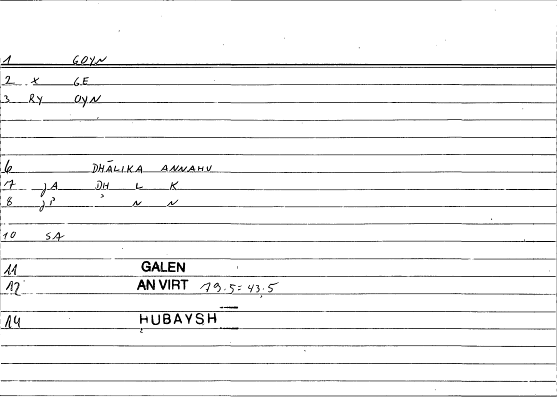 1 GOYN
2 X GE
3 RY OYN
6 DHĀLIKA ANNAHU
7 JA DH L K
8 JP N N
10 SA
11 GALEN
12 AN VIRT 79.5=43.5
14 ḤUBAYSH